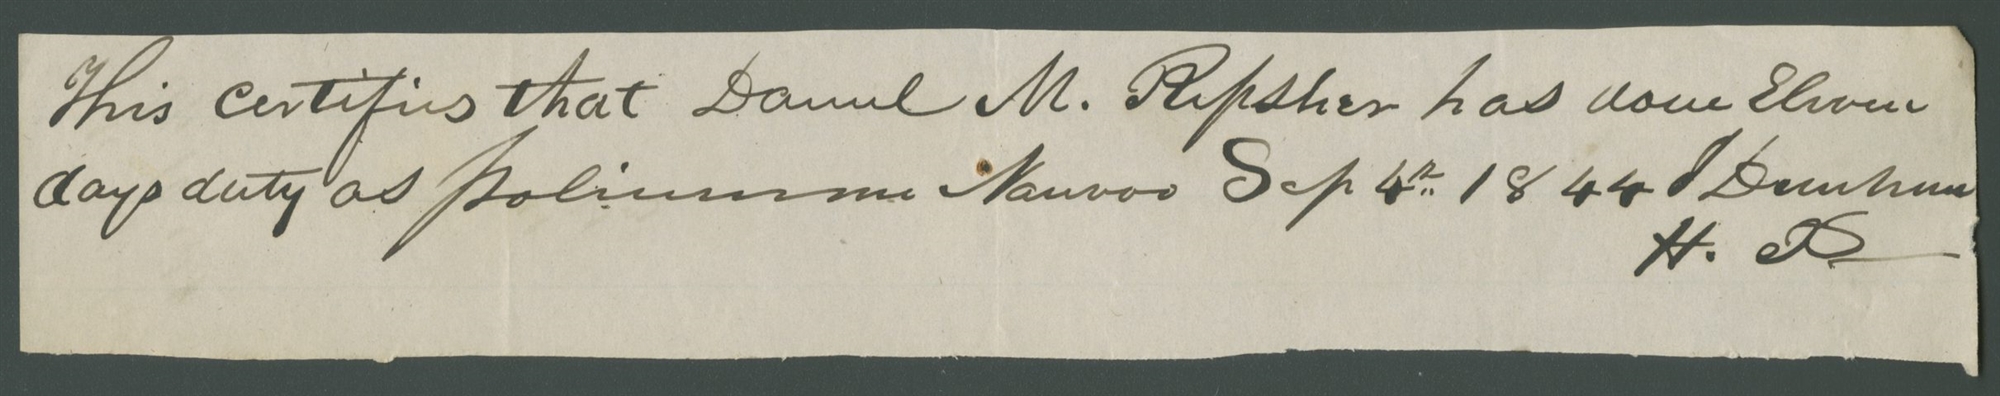 This certifies that Daniel M. Repsher has done Eleven
days duty as policeman Nauvoo Sep 4th. 1844 J Dunham
H. P.